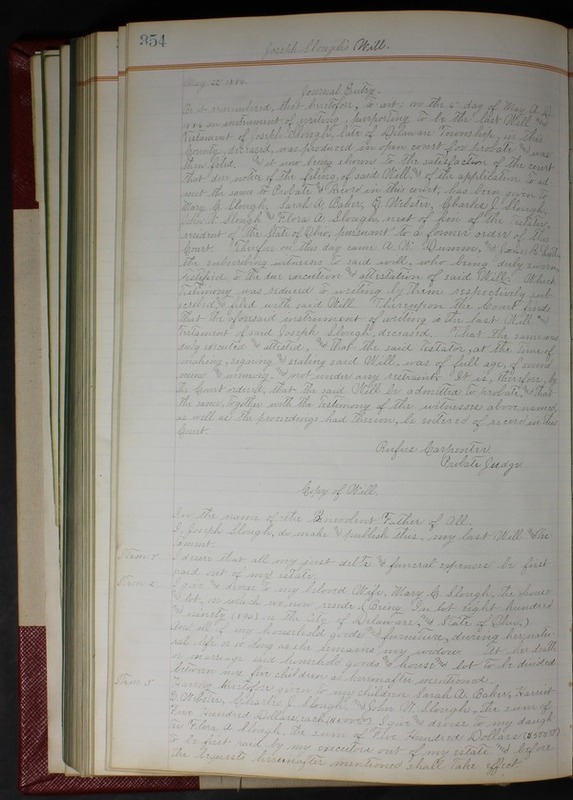 354
Joseph Slough's Will.
May 22 1886.
Journal Entry.
Be it remembered, that heretofore, to wit: on the 5" day of May A. D.
1886 an instrument of writing, purporting to be the last Will and
Testament of Joseph Slough, late of Delaware Township, in this
County, deceased, was produced in open court for probate and was
then filed. And it now being shown to the satisfaction of the court
that due notice of the filing of said Will, & of the application to ad-
mit the same to Probate & Record in this court, has been given to
Mary C. Slough, Sarah A. Baker, Webster, Charles J. Slough,
John W. Slough & Flora A. Slough, next of kin of the Testator,
resident of the State of Ohio, pursuant to a former order of this
Court. Therefore on this day came A. H. and James
the subscribing witnesses to said will, who being duly sworn
testified to the due execution & attestation of said Will. Which
Testimony was reduced to writing by them respectively sub-
scribed & filed with said Will. Thereupon the Court finds
that the aforesaid instrument of writing is the last Will and
Testament of said Joseph Slough, deceased. That the same was
duly executed & attested, and that the said Testator, at the time of
making, signing & sealing said Will, was of full age, of sound
mind & memory, and not under any restraint. It is, therefore, by
the Court ordered, that the said Will be admitted to probate, and that
the same, together with the Testimony of the witnesses above named,
as well as the proceedings had thereon, be entered of record in this
Court.
Rufus Carpenter
Probate Judge
Copy of Will.
In the name of the Benevolent Father of All.
I Joseph Slough, do make & publish this, my last Will and Tes-
tament.
Item 1" I desire that all my just debts & funeral expenses be first
paid out of my estate.
Item 2" I give & devise to my beloved Wife, Mary C. Slough, the house
& lot, on which we now reside (Being In lot Eight hundred
and ninety (890) in the City of Delaware, and State of Ohio,)
Also all of my household goods & furniture, during her natu-
ral life or so long as she remains my widow. At her death
or marriage said household goods and house and lot to be divided
between my five children as hereinafter mentioned.
Item 3" Having heretofore given to my children Sarah A. Baker, Harriet
Webster, Charles J. Slough, and John W. Slough, the sum of
Five Hundred Dollars, each, I give and devise to my daugh-
ter Flora A Slough, the sum of Five Hundred Dollars ($500.00)
to be first paid by my executors out of my estate and before
the bequests hereinafter mentioned shall take effect